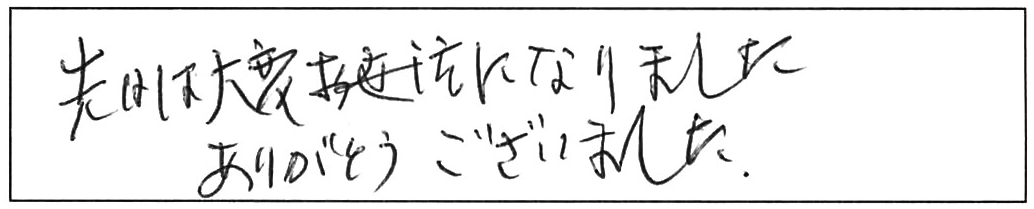 先日は大変お世話になりました
ありがとうございました.